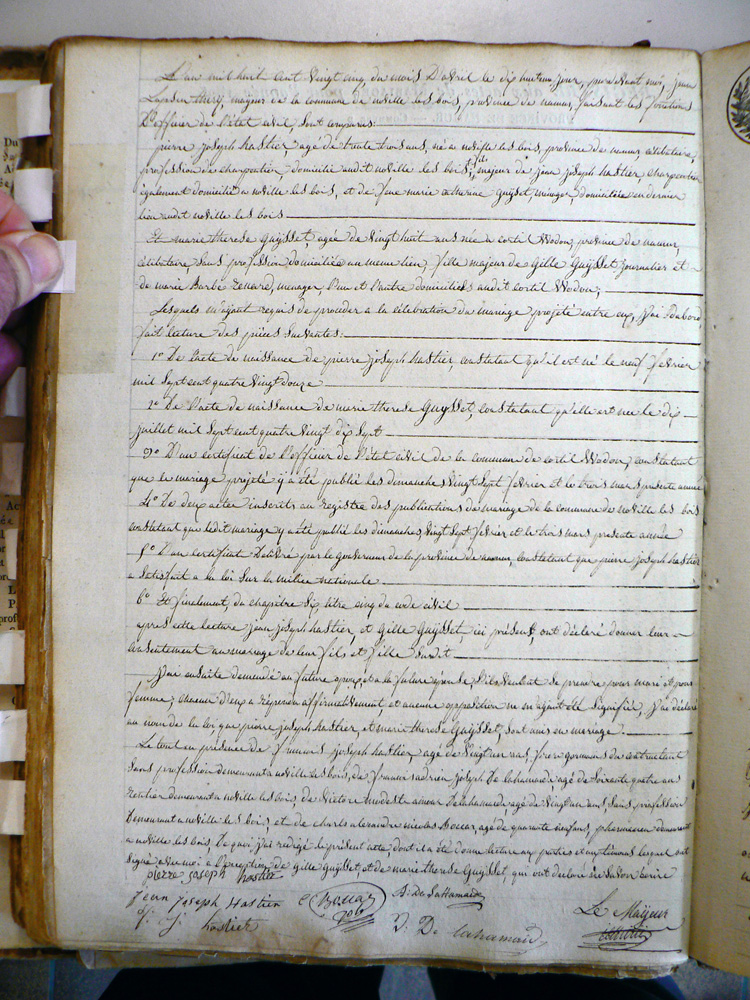 L'an mil huit cent vingt cinq du mois D'avril le dix huitieme jour, par devant moi, jean
mayeur de la commune de noville les bois, province de namur, faisant les fonctions
D'officier de l'état civil, sont comparus:
pierre joseph hastier, agé de trente trois ans, né a noville les bois, province de namur, célibataire,
profession de charpentier domicilié audit noville les bois, fils majeur de jean joseph hastier, charpentier
également domicilié a noville les bois, et de marie catherine Guÿset, ménager, domiciliée en dernier
lieu audit noville les bois
Et marie therese Guÿsset agée de vingt huit ans née a cortil Wodon, province de namur,
célibataire, sans profession domiciliée au meme lieu, fille majeur de Gille Guÿsset journalier et
de marie Barbe Renard, menager, l'un et l'autre domiciliés audit cortil Wodon,
Lesquels m'ayant requis de proceder a la célébration du mariage projeté entre eux, j'ai d'abord
fait lecture des pièces suivantes:
1° De l'acte de naissance de pierre joseph hastier, constatant qu'il est né le neuf fevrier
mil sept cent quatre vingt douze
2° De l'acte de naissance de marie therese Guÿsset, constatant qu'elle est née le dix
juillet mil sept cent quatre vingt dix sept
3° D'un certificat de l'officier de l'état civil de la commune de cortil Wodon, constatant
que le mariage projeté y a été publié les dimanches vingt sept fevrier et le trois mars présente année
4° De deux actes inscrits au registre des publications de mariage de la commune de noville les bois
constatant que ledit mariage y a été publié les dimanches, vingt sept fevrier et le trois mars présente année
5° D'un certificat délivré par le gouverneur de la province de namur, constatant que pierre joseph hastier
a satisfait a la loi sur la milice nationale.
6° Et finalement, du chapitre six, titre cinq du code civil
après cette lecture jean joseph hastier, et Gille Guÿsset ici présent, ont déclaré donner leur
consentement au mariage de leur fils et fille susdit
J'ai ensuite demandé au future époux et a la future épouse, s'ils veulent se prendre pour mari et pour
femme; chacun d'eux a répondu affirmativement, et aucune opposition ne m'ayant été signifiée, j'ai déclaré
au nom de la loi, que pierre joseph hastier, et marie therese Guÿsset, sont unis en mariage.
Le tout en présence de francois joseph hastier, agé de vingt un ans, frere germain du contractant
sans profession demeurant a noville les bois, de francois adrien joseph De lahamaide agé de soixante quatre ans
rentier demeurant a noville les bois, de Victore modeste De lahamaide agé de vingt un ans, sans profession
demeurant a noville les bois, et de charle alexandre nicolas Boucar, agé de quarante ans, pharmacien demeurant
a noville les bois. De quoi j'ai redigé le présent acte dont il a été donné lecture aux parties et aux témoins lesquels ont
signé avec moi a l'exception de Gille Guÿsset, et de marie therese Guÿsset qui ont déclaré ne savoir écrire
pierre joseph hastier
jean Joseph Hastier C Boucar D: De Lahamaide
f: j: hastier V. De Lahamaide Le Maÿeur